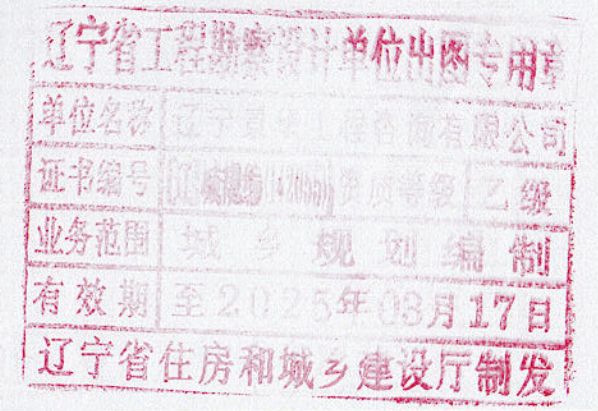 辽宁省工程勘察设计单位出图专用章
单位名称 辽宁 工程咨询有限公司
证书编号 资质等级 乙级
业务范围 城乡规划编制
有效期 至2025年08月17日
辽宁省住房和城乡建设厅制发